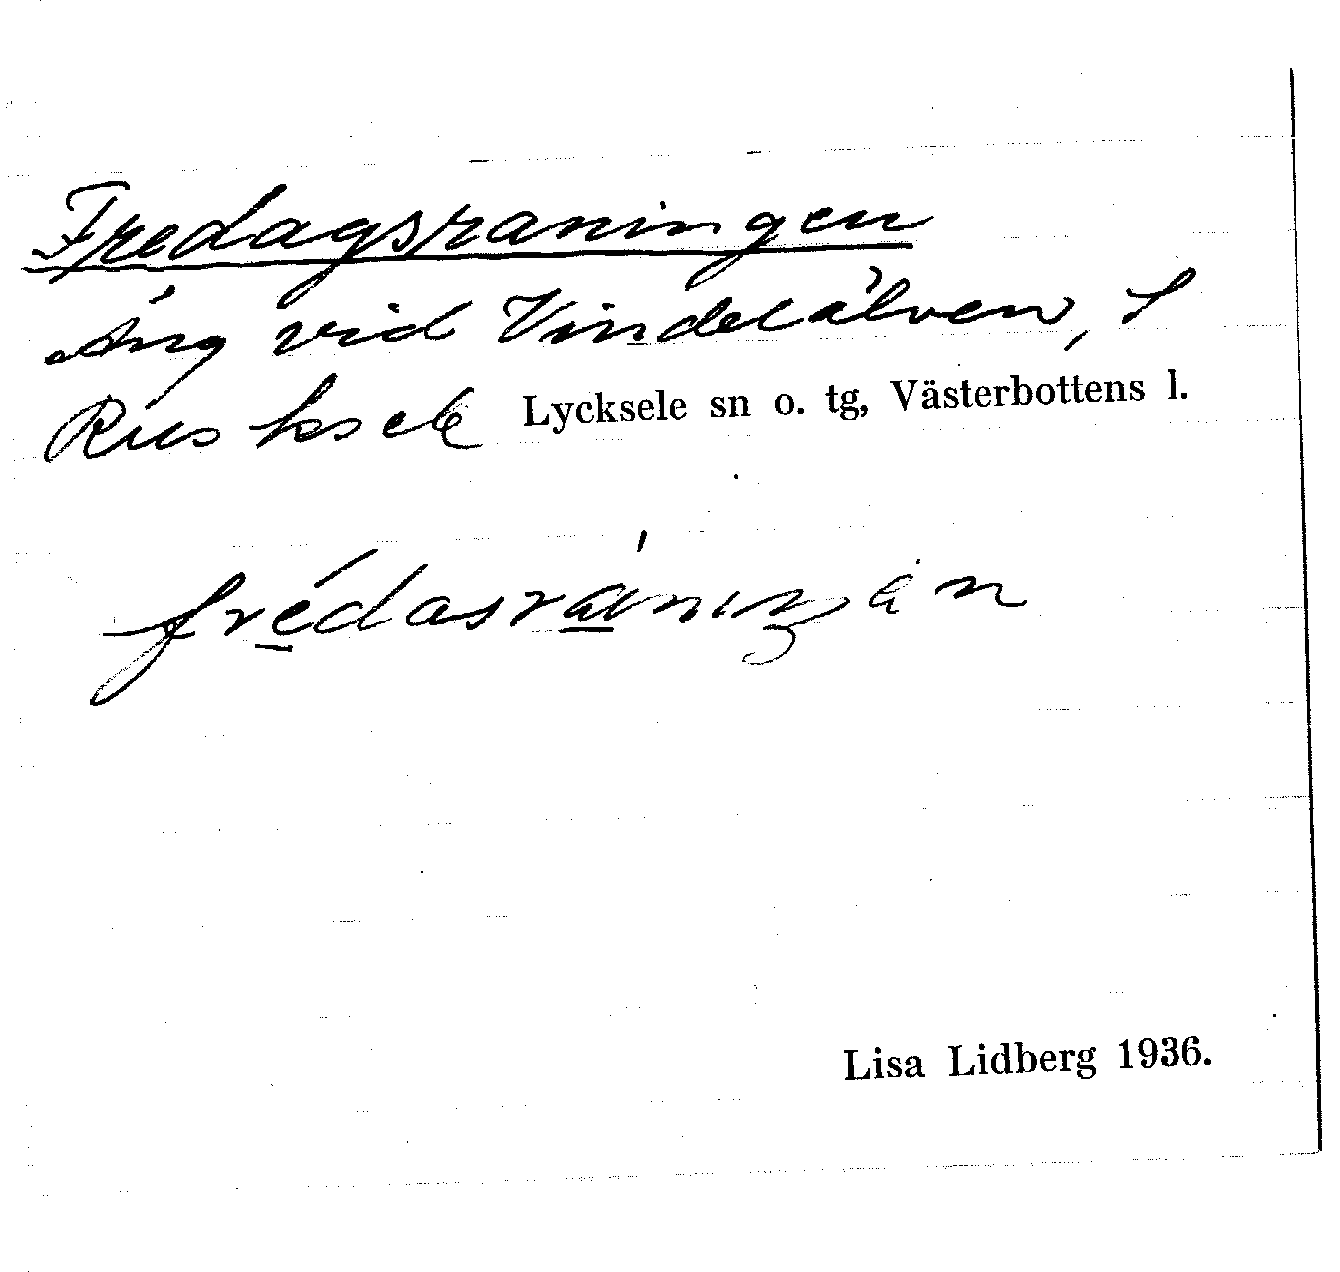 Fredagsraningen
Äng vid Vindelälven, i
Rusksele Lycksele sn o. tg, Västerbottens l.
frédasrániŋän
Lisa Lidberg 1936.